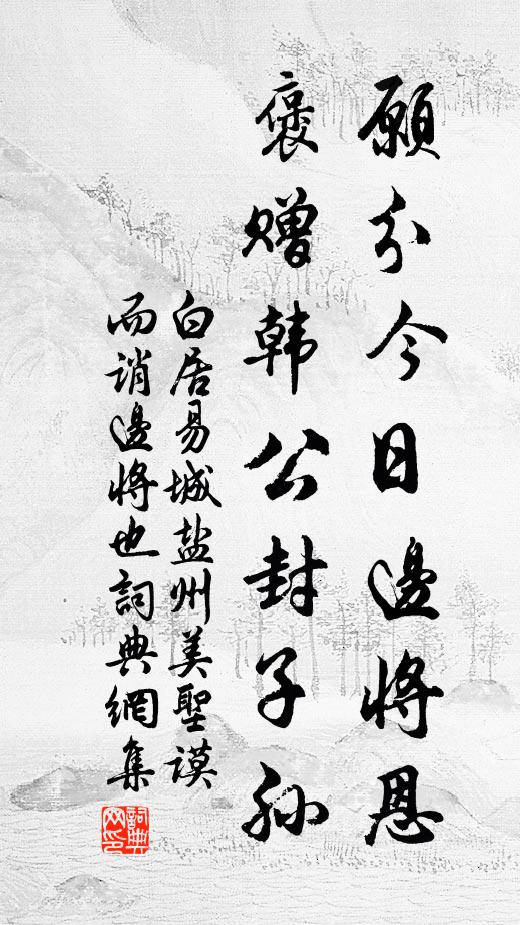 願分今日邊將恩
褒贈韓公封子孫
白居易城盐州美聖謨
而誚邊將也詞典網集
詞典网印